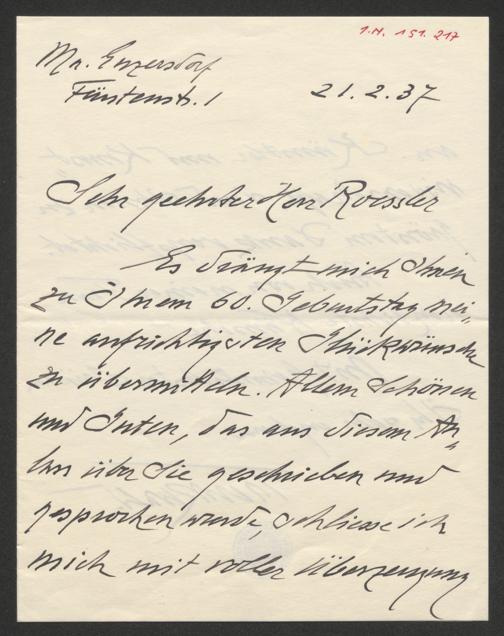 I.N. 151.217
Ma. Enzersdorf
Fürstenstr. 1
21.2.37
Sehr geehrter Herr Roessler
Es drängt mich Ihnen
zu Ihrem 60. Geburtstag mei-
ne aufrichtigsten Glückwünsche
zu übermitteln. Allem Schönen
und Guten, das aus diesem An-
lass über Sie geschrieben und
gesprochen wurde, schliesse ich
mich mit voller Überzeugung